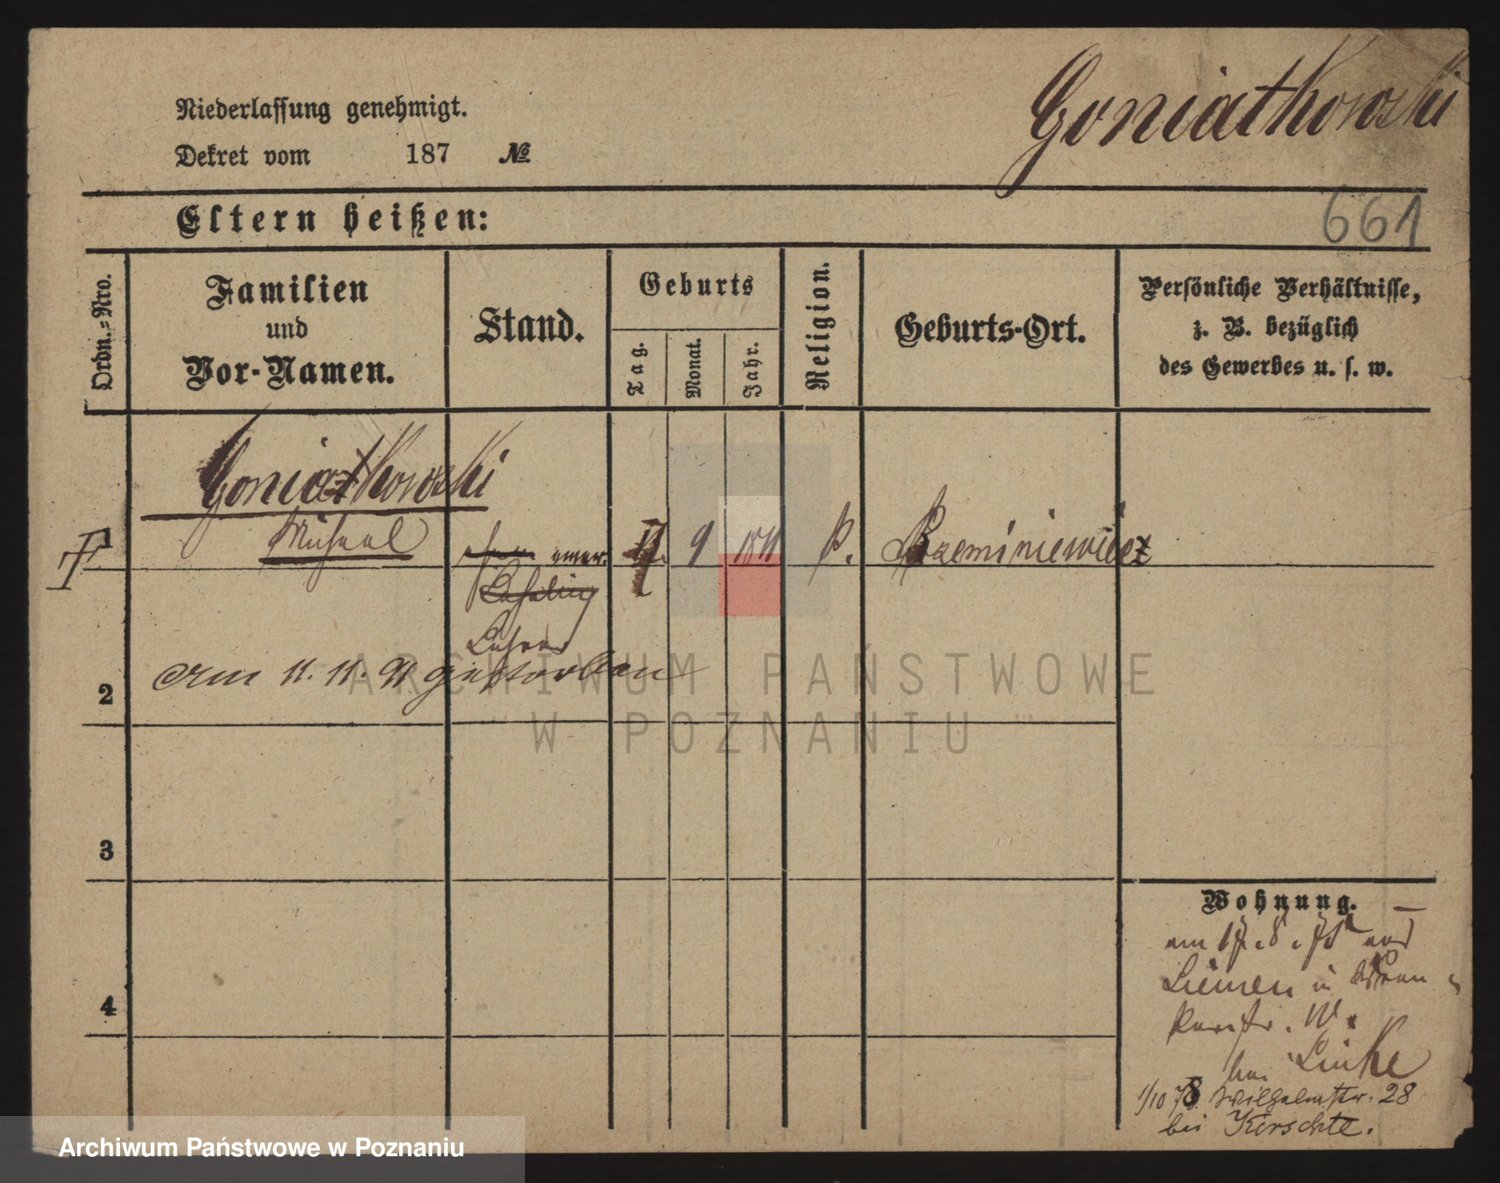 Goniatkowski
Niederlassung genehmigt.
Dekret vom 187 №
Eltern heißen:
661
Ordn.-Nro.
Familien
und
Vor-Namen.
Stand.
Geburts
Tag.
Monat.
Jahr.
Religion.
Geburts-Ort.
Persönliche Verhältnisse,
z. B. bezüglich
des Gewerbes u. s. w.
Goniatkowski
Michael
emer. 9 1811
Lehrer
am 11. 11. 91 gestorben
2
3
4
Wohnung.
am 17. 8. aus
in
bei Linke
1/10 78 Wilhelmstr. 28
bei Kirschte.
ARCHIWUM PAŃSTWOWE
W POZNANIU
Archiwum Państwowe w Poznaniu